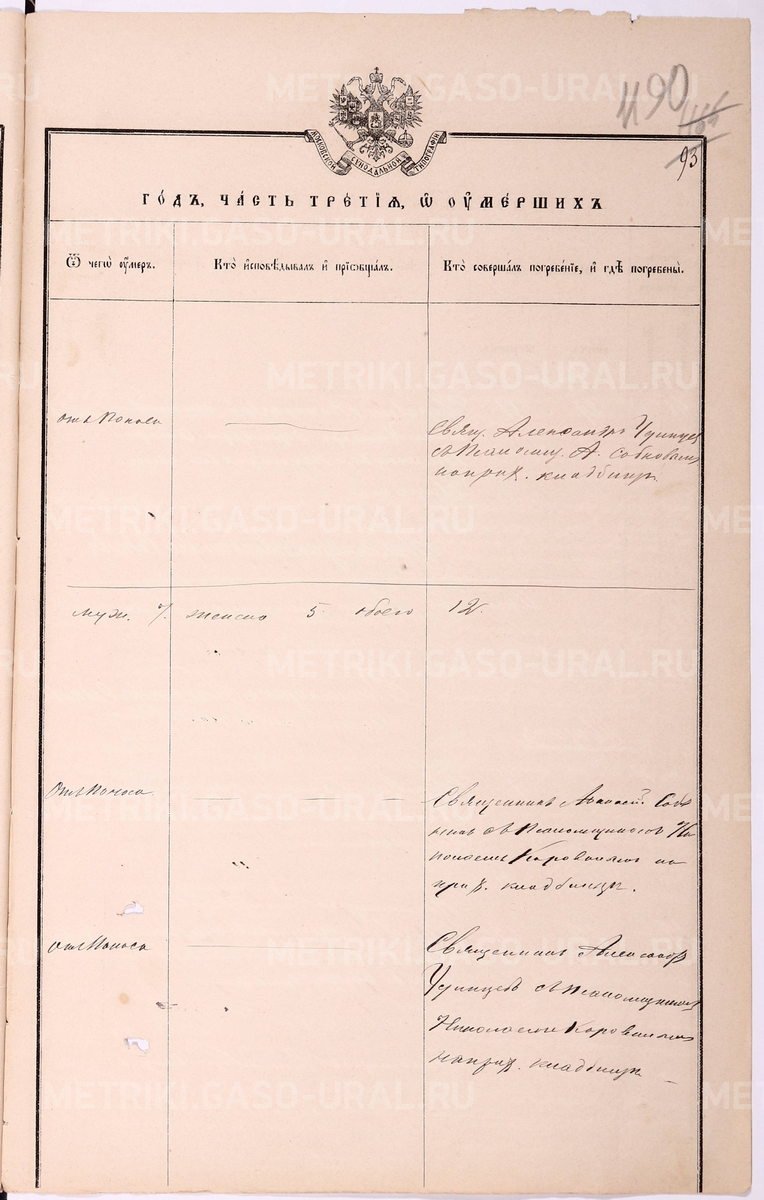 490
93
МОСКОВСКОЙ СѴНОДАЛЬНОЙ ТИПОГРАФІИ
ГО́ДЪ, ЧА́СТЬ ТРЕ́ТІѦ, Ѡ҆ ОУ҆МЕ́РШИХЪ
Ѿ чегѡ̀ оу҆́меръ.
Кто̀ и҆сповѣ́дывалъ и҆ прїѡбща́лъ.
Кто̀ соверша́лъ погребе́нїе, и҆ гдѣ̀ погребены̀.
отъ Поноса
Свящ. Александръ Удинцев
съ Псаломщ. А.
на прих. кладбищѣ
муж. 7. женска 5. обоего 12.
Отъ Поноса
Священникъ
съ Псаломщикомъ Ни
колаемъ Короваевымъ на
прих. кладбищѣ.
Отъ Поноса
Священникъ Александръ
Удинцевъ съ Псаломщикомъ
Николаемъ Короваевымъ
на прих. кладбищѣ
METRIKI.GASO-URAL.RU